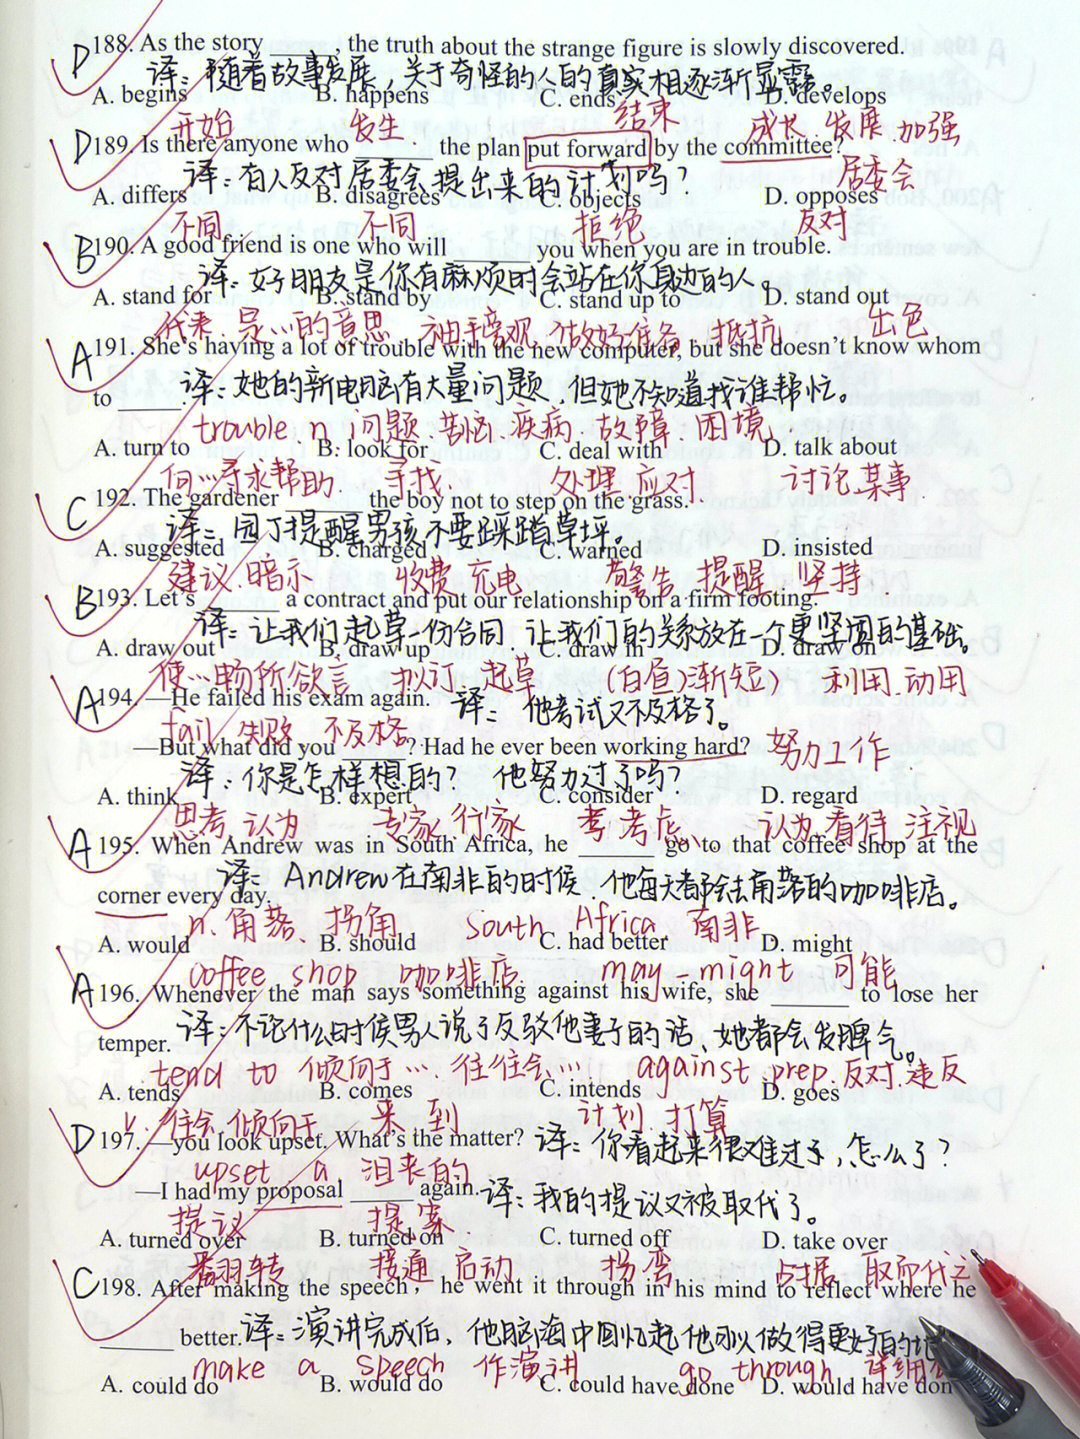 D 188. As the story ______, the truth about the strange figure is slowly discovered.
译: 随着故事发展, 关于奇怪的人的真实相逐渐显露。
A. begins B. happens C. ends D. develops
开始 发生 结束 成长 发展 加强
D 189. Is there anyone who ______ the plan put forward by the committee?
译: 有人反对居委会提出来的计划吗? 居委会
A. differs B. disagrees C. objects D. opposes
不同 不同 拒绝 反对
B 190. A good friend is one who will ______ you when you are in trouble.
译: 好朋友是你有麻烦时会站在你身边的人。
A. stand for B. stand by C. stand up to D. stand out
代表 是…的意思 袖手旁观 做好准备 抵抗 出色
A 191. She's having a lot of trouble with the new computer, but she doesn't know whom
to ______. 译: 她的新电脑有大量问题, 但她不知道找谁帮忙。
trouble n 问题 苦恼 疾病 故障 困境
A. turn to B. look for C. deal with D. talk about
向…寻求帮助 寻找 处理 应对 讨论某事
C 192. The gardener ______ the boy not to step on the grass.
译: 园丁提醒男孩不要踩踏草坪。
A. suggested B. charged C. warned D. insisted
建议 暗示 收费 充电 警告 提醒 坚持
B 193. Let's ______ a contract and put our relationship on a firm footing.
译: 让我们起草一份合同 让我们的关系放在一个更坚固的基础。
A. draw out B. draw up C. draw in D. draw on
使…畅所欲言 拟订 起草 (白昼)渐短) 利用 动用
A 194. —He failed his exam again. 译: 他考试又不及格了。
fail 失败 不及格
—But what did you ______? Had he ever been working hard? 努力工作
译: 你是怎样想的? 他努力过了吗?
A. think B. expert C. consider D. regard
思考 认为 专家 行家 考虑 认为 看待 注视
A 195. When Andrew was in South Africa, he ______ go to that coffee shop at the
译: Andrew在南非的时候, 他每天都会去角落的咖啡店。
corner every day.
n. 角落 拐角 South Africa 南非
A. would B. should C. had better D. might
coffee shop 咖啡店 may—might 可能
A 196. Whenever the man says something against his wife, she ______ to lose her
temper. 译: 不论什么时候男人说了反驳他妻子的话, 她都会发脾气。
tend to 倾向于… 往往会… against prep. 反对 违反
A. tends B. comes C. intends D. goes
v. 往会 倾向于 来 到 计划 打算
D 197. —you look upset. What's the matter? 译: 你看起来很难过了, 怎么了?
upset a 沮丧的
—I had my proposal ______ again. 译: 我的提议又被取代了。
提议 提案
A. turned over B. turned on C. turned off D. take over
翻转 接通 启动 拐弯 占据 取而代之
C 198. After making the speech, he went it through in his mind to reflect where he
______ better. 译: 演讲完成后, 他脑海中回忆起他可以做得更好的地
make a speech 作演讲 go through 详细
A. could do B. would do C. could have done D. would have don